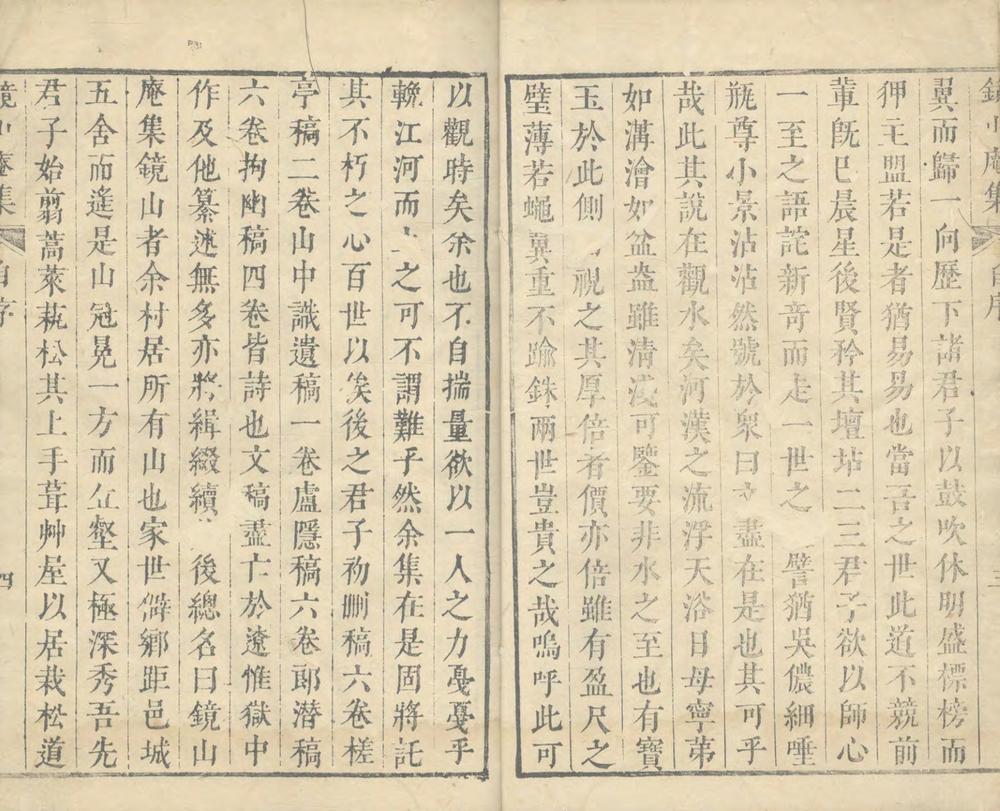 鏡山庵集 自序 三
翼而歸一向歷下諸君子以鼓吹休明盛標榜而
狎主盟若是者猶易易也當吾之世此道不競前
軰旣巳晨星後賢矜其壇坫二三君子欲以師心
一至之語詫新奇而走一世之 譬猶吳儂細唾
瓶尊小景沾沾然號於衆曰 盡在是也其可乎
哉此其說在觀水矣河漢之流浮天浴日母寧苐
如溝澮如盆盎雖淸淺可鑒要非水之至也有寶
玉於此側 視之其厚倍者價亦倍雖有盈尺之
璧薄若蠅翼重不踰銖兩世豈貴之哉嗚呼此可
以觀時矣余也不自揣量欲以一人之力戞戞乎
輓江河而 之可不謂難乎然余集在是固將託
其不朽之心百世以俟後之君子初刪稿六卷槎
亭稿二卷山中識遺稿一卷盧隱稿六卷郞潛稿
六卷拘幽稿四卷皆詩也文稿盡亡於遼惟獄中
作及他纂述無多亦將緝綴續 後總名曰鏡山
庵集鏡山者余村居所有山也家世僻鄕距邑城
五舍而遙是山冠冕一方而丘壑又極深秀吾先
君子始翦蒿萊蓺松其上手葺艸屋以居栽松道
鏡山庵集 自序 四